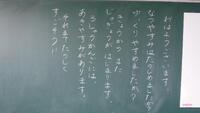 おはようございます。
なつやすみはたのしめましたか?
ゆっくりやすめましたか?
きょうから また
じゅぎょうが はじまります。
らいしゅうかんごには、
あきやすみがあります。
それまで たのしく
すごそう!